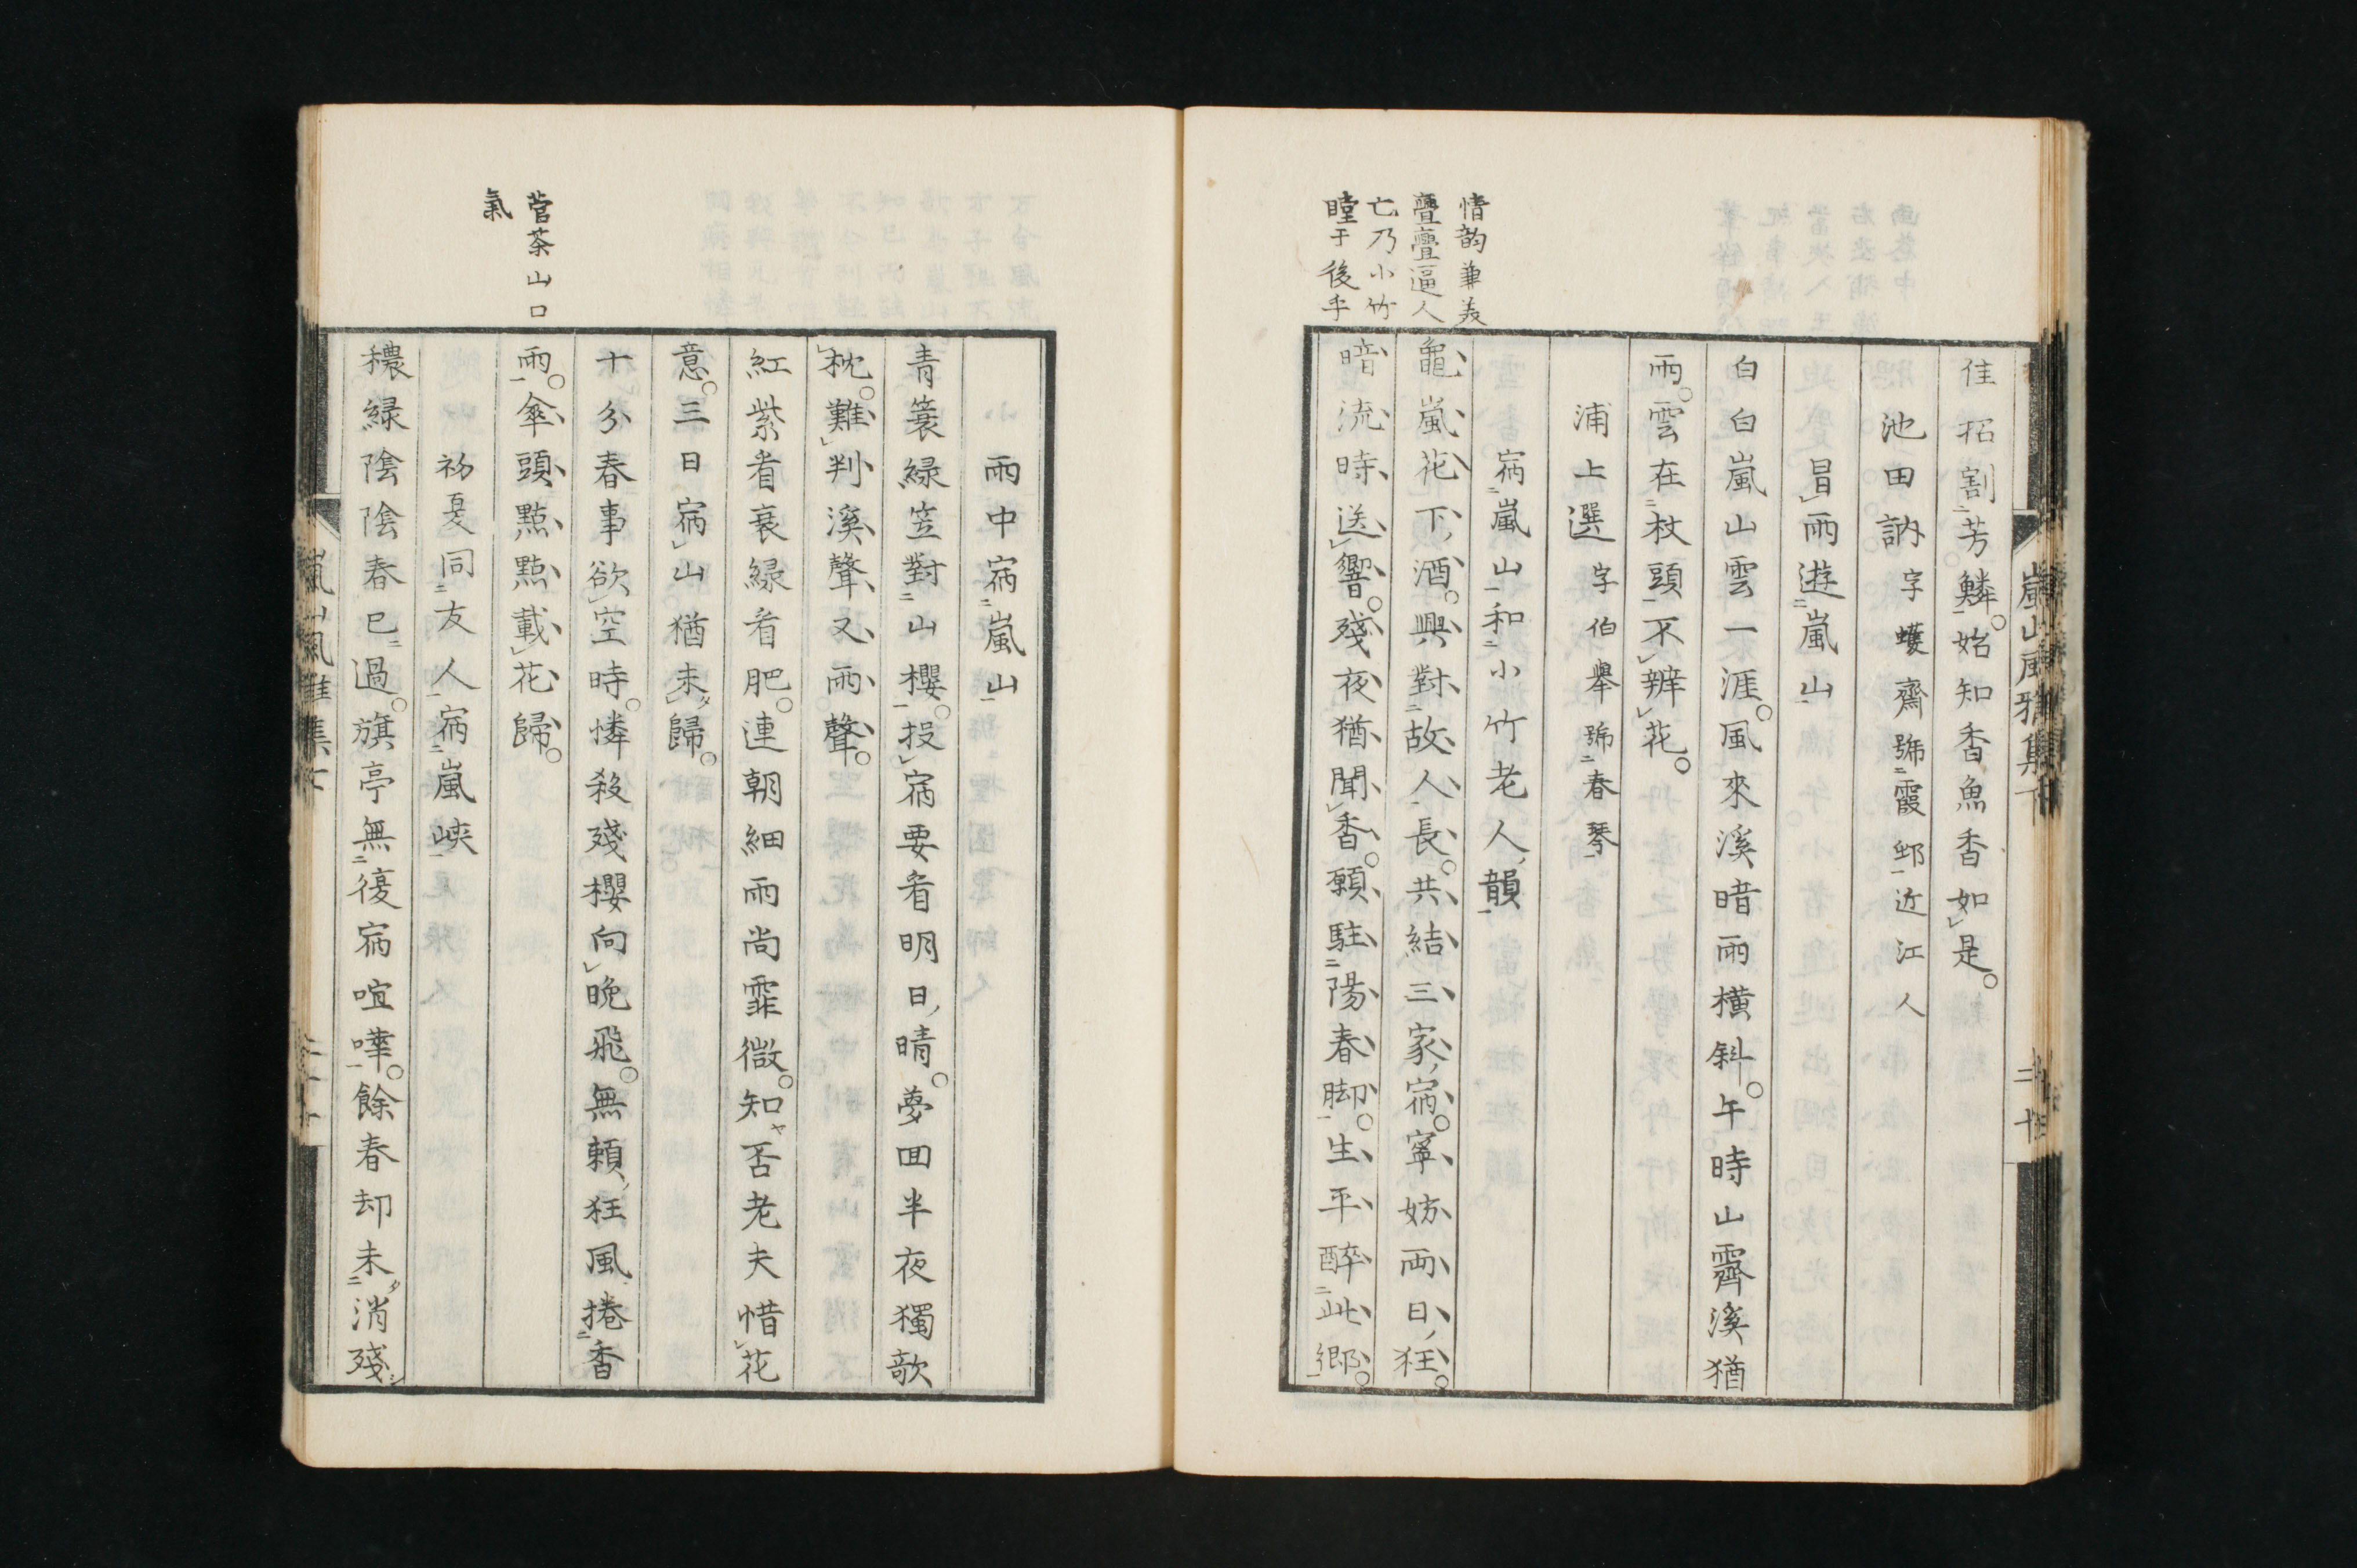 嵐山風雅集下
佳招割芳鱗始知香魚香如是
池田訥字蠖齋號霞邨近江人
冒雨遊嵐山
白白嵐山雲一涯風來溪暗雨橫斜午時山霽溪猶
雨雲在杖頭不辨花
浦上選字伯舉號春琴
宿嵐山和小竹老人韻
情韵兼美
亹亹逼人
亡乃小竹
瞠于後乎
龜嵐花下酒興對故人長共結三家宿寧妨兩日狂
暗流時送響殘夜猶聞香願駐陽春脚生平醉此鄉
雨中宿嵐山
青簑綠笠對山櫻投宿要看明日晴夢回半夜獨欹
枕難判溪聲又雨聲
紅紫看衰綠看肥連朝細雨尚霏微知ヤ否老夫惜花
意三日宿山猶未タ歸
十分春事欲空時憐殺殘櫻向晚飛無賴狂風捲香
菅茶山口
氣
雨傘頭點點載花歸
初夏同友人宿嵐峽
穠綠陰陰春已過旗亭無復宿喧嘩餘春却未タ消殘
嵐山風雅集下